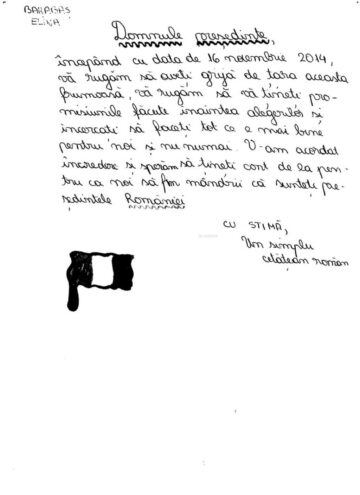 BARABAS
ELINA
Domnule președinte,
începând cu data de 16 noiembrie 2014,
vă rugăm să aveti grijă de tara aceasta
frumoasă, vă rugăm să vă tineti pro-
misiunile făcute înaintea alegerilor si
încercati să faceti tot ce e mai bine
pentru noi si nu numai. V-am acordat
încredere si sperăm să tineti cont de la pen-
tru ca noi să fim mândri că sunteti pre-
sedintele României
CU STIMĂ,
Un simplu
cetătean român